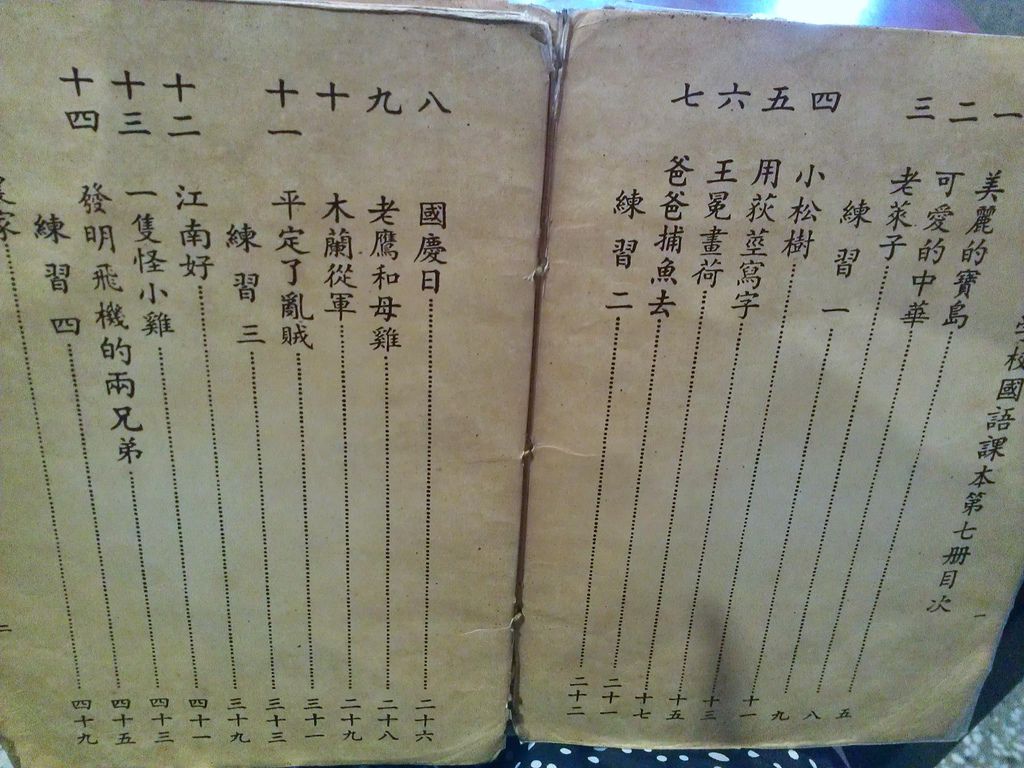 校國語課本第七册目次
一
一 美麗的寶島 五
二 可愛的中華 八
三 老萊子 九
練習一 十一
四 小松樹 十三
五 用荻莖寫字 十五
六 王冕畫荷 十七
七 爸爸捕魚去 二十一
練習二 二十二
八 國慶日 二十六
九 老鷹和母雞 二十八
十 木蘭從軍 二十九
十一 平定了亂賊 三十一
練習三 三十三
十二 江南好 三十九
十三 一隻怪小雞 四十一
十四 發明飛機的兩兄弟 四十三
練習四 四十五
家 四十九
二